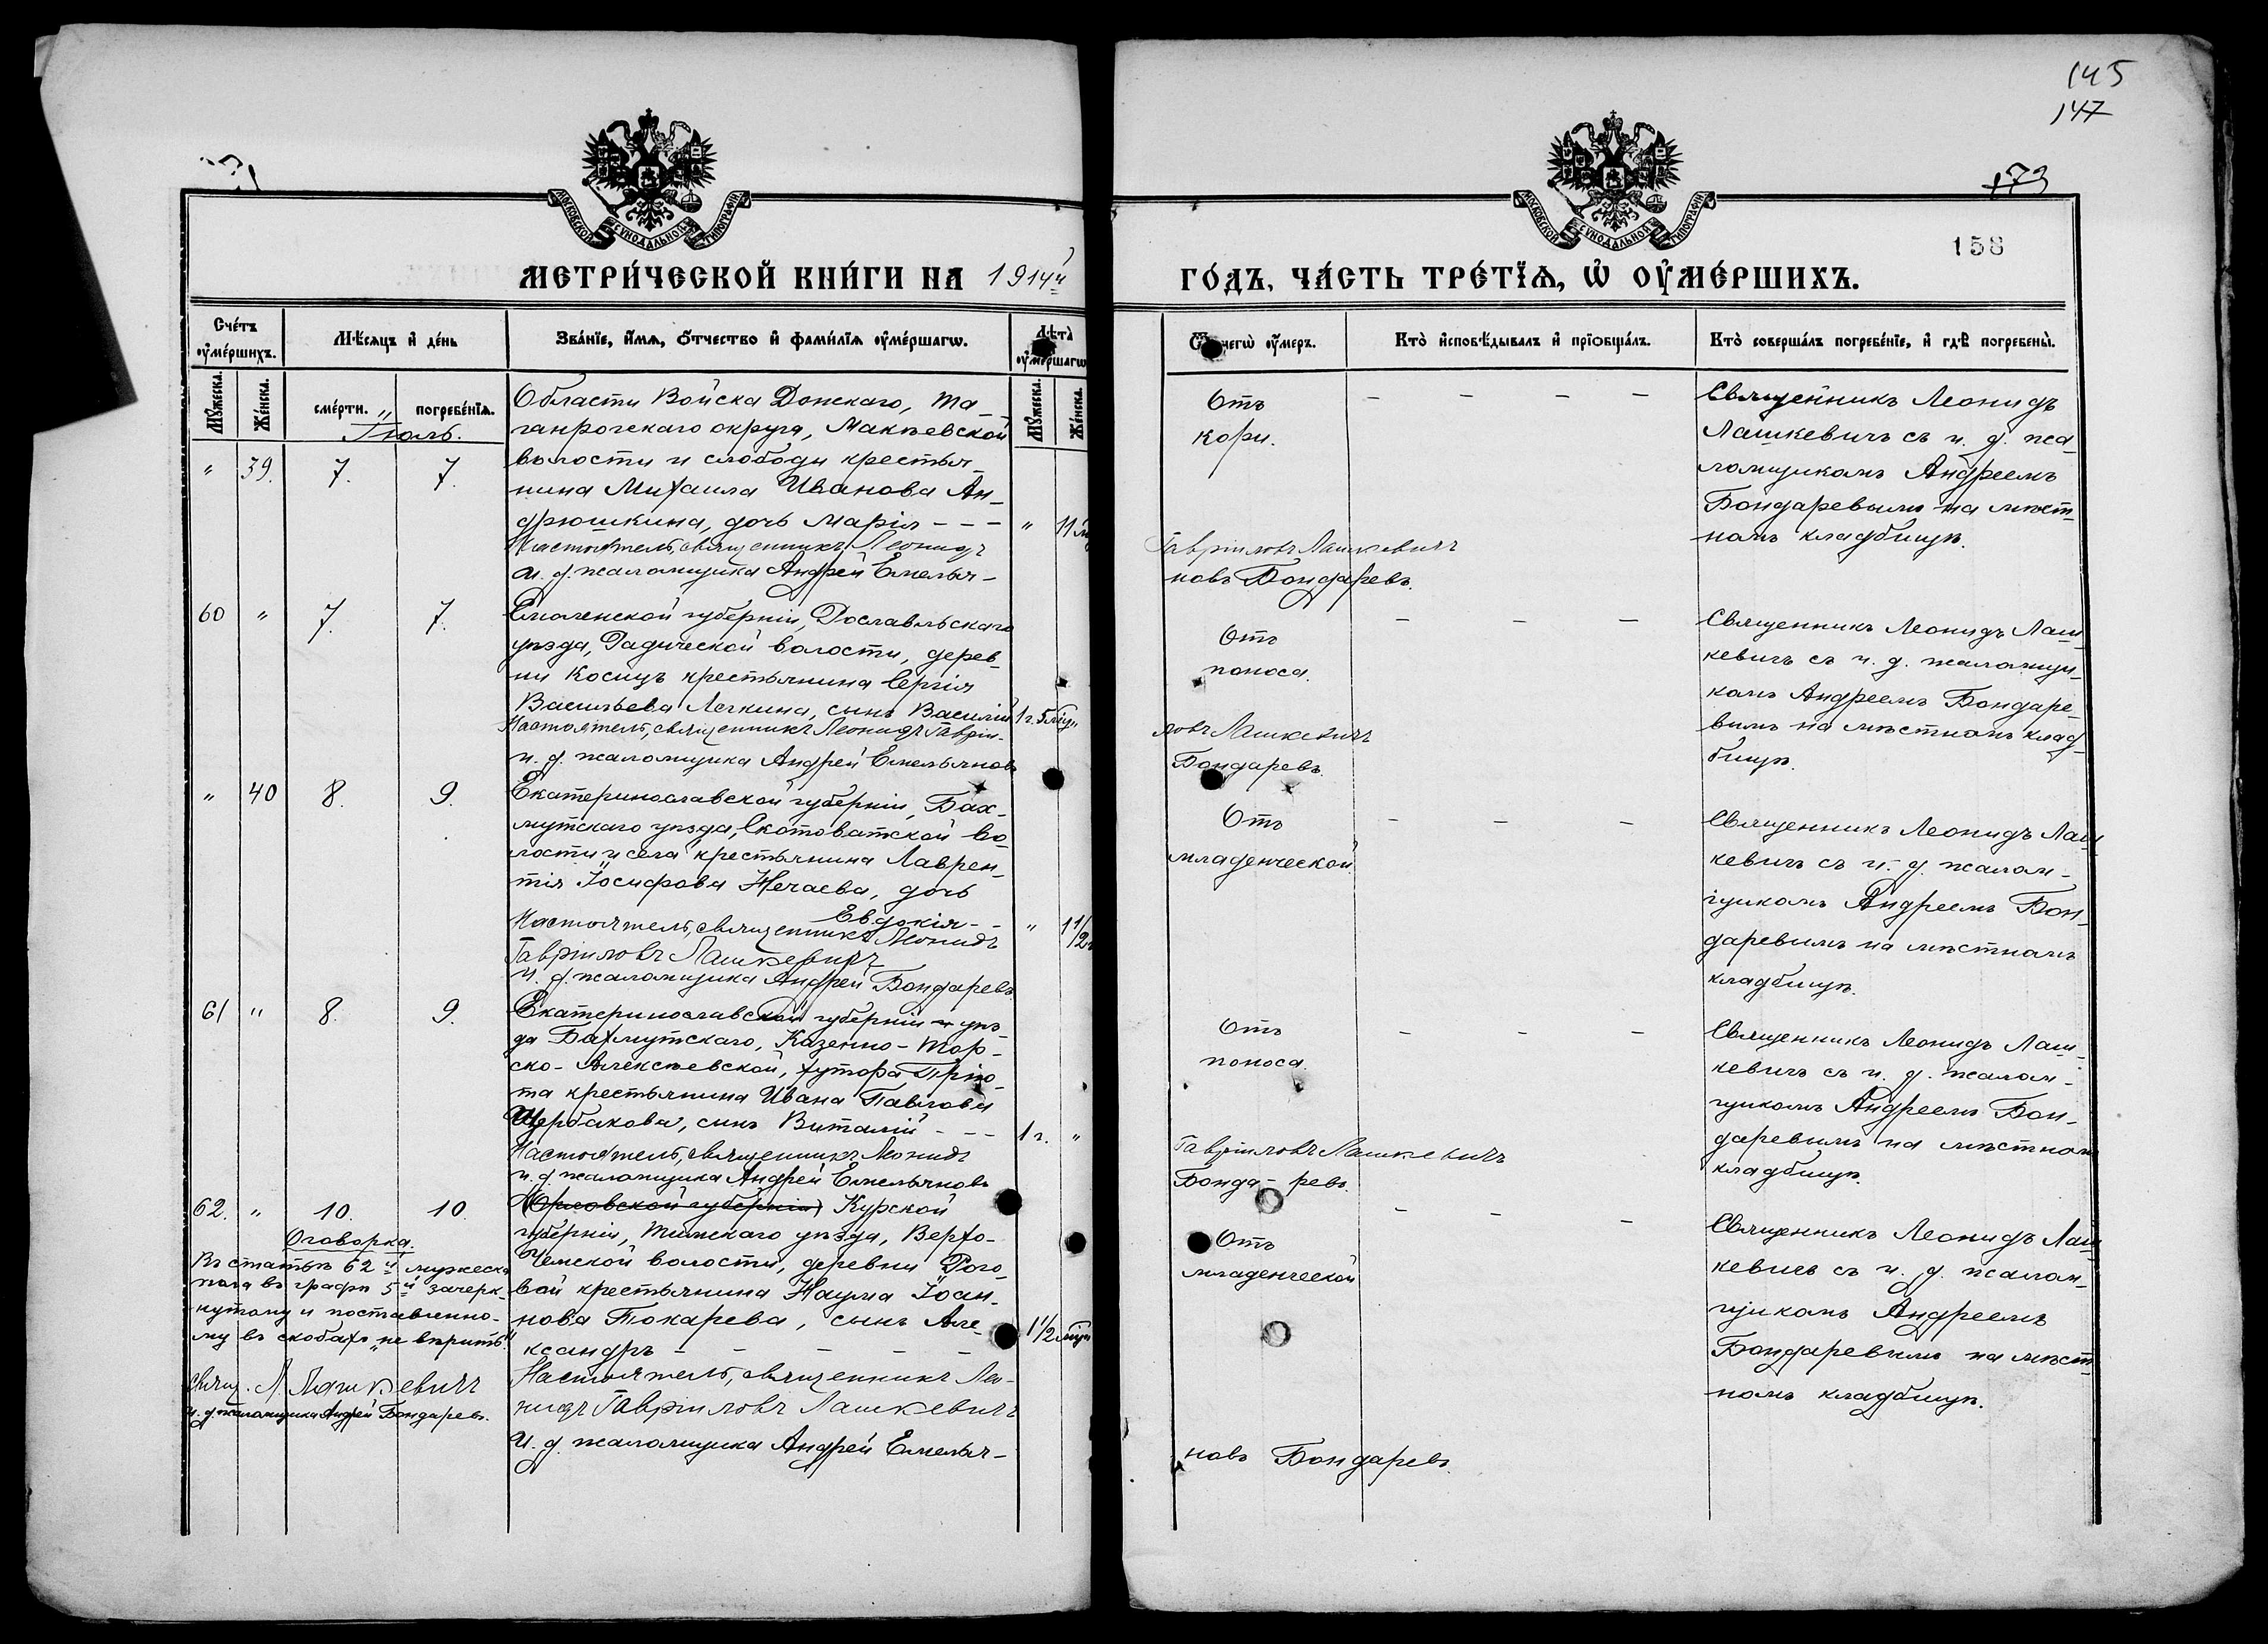 145
147
173
158
МОСКОВСКОЙ СѴНОДАЛЬНОЙ ТИПОГРАФІИ.
МОСКОВСКОЙ СѴНОДАЛЬНОЙ ТИПОГРАФІИ.
МЕТРИ́ЧЕСКОЙ КНИ́ГИ НА 1914й
ГО́ДЪ, ЧА́СТЬ ТРЕ́ТЇѦ, Ѡ҆ ОУ҆МЕ́РШИХЪ.
Сче́тъ оу҆ме́ршихъ.
Мѣ́сѧцъ и҆ де́нь
Зва́нїе, и҆́мѧ, ѻ҆́тчество и҆ фами́лїѧ оу҆ме́ршагѡ.
Лѣта̀ оу҆ме́ршагѡ
Ѿ чегѡ̀ оу҆́меръ.
Кто̀ и҆сповѣ́дывалъ и҆ прїѡбща́лъ.
Кто̀ соверша́лъ погребе́нїе, и҆ гдѣ̀ погребены̀.
Мꙋ́жеска.
Же́нска.
сме́рти.
погребе́нїѧ.
Мꙋ́жеска.
Же́нска.
Іюль.
" 39. 7. 7.
Области Войска Донскаго, Та-
ганрогскаго округа, Макѣевской
волости и слободы крестья-
нина Михаила Иванова Ан-
дрюшкина, дочь Марія - - -
" 11 м
Отъ
кори.
- - - -
Священникъ Леонидъ
Лашкевичъ съ и. д. пса-
ломщикомъ Андреемъ
Бондаревымъ на мѣст-
номъ кладбищѣ.
Настоятель, священникъ Леонидъ
Гавріиловъ Лашкевичъ
и. д. псаломщика Андрей Емелья-
новъ Бондаревъ.
60 " 7. 7.
Смоленской губерніи, Рославльскаго
уѣзда, Радической волости, дерев-
ни Косицъ крестьянина Сергія
Васильева Легкина, сынъ Василій
1 г. 5 мѣц.
Отъ
поноса.
- - -
Священникъ Леонидъ Лаш-
кевичъ съ и. д. псаломщи-
комъ Андреемъ Бондаре-
вымъ на мѣстномъ клад-
бищѣ.
Настоятель, священникъ Леонидъ Гаврiи-
ловъ Лашкевичъ
и. д. псаломщика Андрей Емельяновъ
Бондаревъ.
" 40 8. 9.
Екатеринославской губерніи, Бах-
мутскаго уѣзда, Скотоватской во-
лости и села крестьянина Лаврен-
тія Іосифова Нечаева, дочь
Евдокія - -
" 1 1/2
Отъ
младенческой
- - -
Священникъ Леонидъ Лаш-
кевичъ съ и. д. псалом-
щикомъ Андреемъ Бон-
даревымъ на мѣстномъ
кладбищѣ.
Настоятель, священникъ Леонидъ
Гавріиловъ Лашкевичъ
и. д. псаломщика Андрей Бондаревъ
61 " 8. 9.
Екатеринославской губерніи уѣз-
да Бахмутскаго, Казенно-Тор-
ско-Алексѣевской, хутора Прію-
та крестьянина Ивана Павлова
Щербакова, сынъ Виталій - - -
1 г. "
Отъ
поноса.
- - -
Священникъ Леонидъ Лаш-
кевичъ съ и. д. псалом-
щикомъ Андреемъ Бон-
даревымъ на мѣстномъ
кладбищѣ.
Настоятель, священникъ Леонидъ
Гавріиловъ Лашкевичъ
и. д. псаломщика Андрей Емельяновъ
Бонда-ревъ.
62. " 10. 10.
(Орловской губерніи) Курской
губерніи, Тимскаго уѣзда, Верхо-
олемской волости, деревни Рого-
вой крестьянина Наума Іоан-
нова Токарева, сынъ Але-
ксандръ - - - - -
1 1/2 мѣц
Отъ
младенческой
- - -
Священникъ Леонидъ Лаш-
кевичъ съ и. д. псалом-
щикомъ Андреемъ
Бондаревымъ на мѣст-
номъ кладбищѣ.
Оговорка.
Въ статьѣ 62й мужеск.
пола въ графѣ 5й зачерк-
нутому и поставленно-
му въ скобахъ "не вѣрить".
Свящ. Л. Лашкевичъ
и. д. псаломщика Андрей Бондаревъ.
Настоятель, священникъ Лео-
нидъ Гавріиловъ Лашкевичъ
И. д. псаломщика Андрей Емелья-
новъ Бондаревъ.